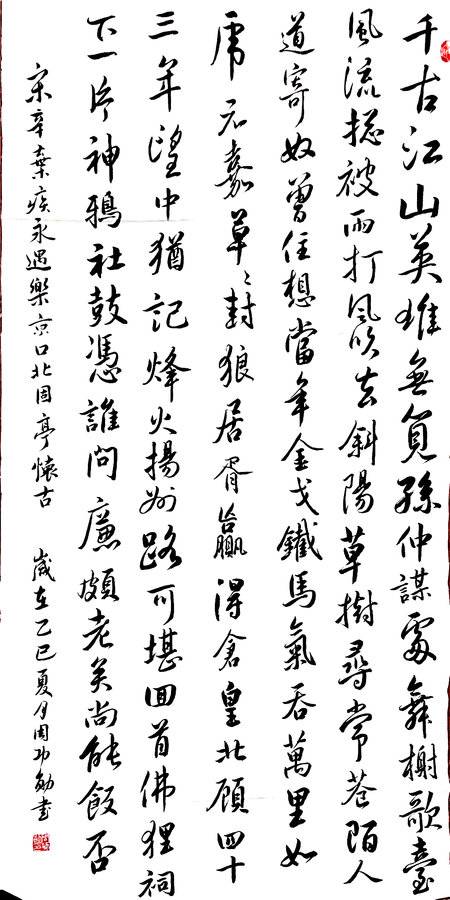 千古江山英雄無覓孫仲謀處舞榭歌臺
風流揔被雨打風吹去斜陽草樹尋常巷陌人
道寄奴曾住想當年金戈鐵馬氣吞萬里如
虎元嘉草〻封狼居胥贏得倉皇北顧四十
三年望中猶記烽火揚州路可堪回首佛狸祠
下一片神鴉社鼓憑誰問廉頗老矣尚能飯否
宋辛棄疾永遇樂京口北固亭懷古 歲在乙巳夏月周功書